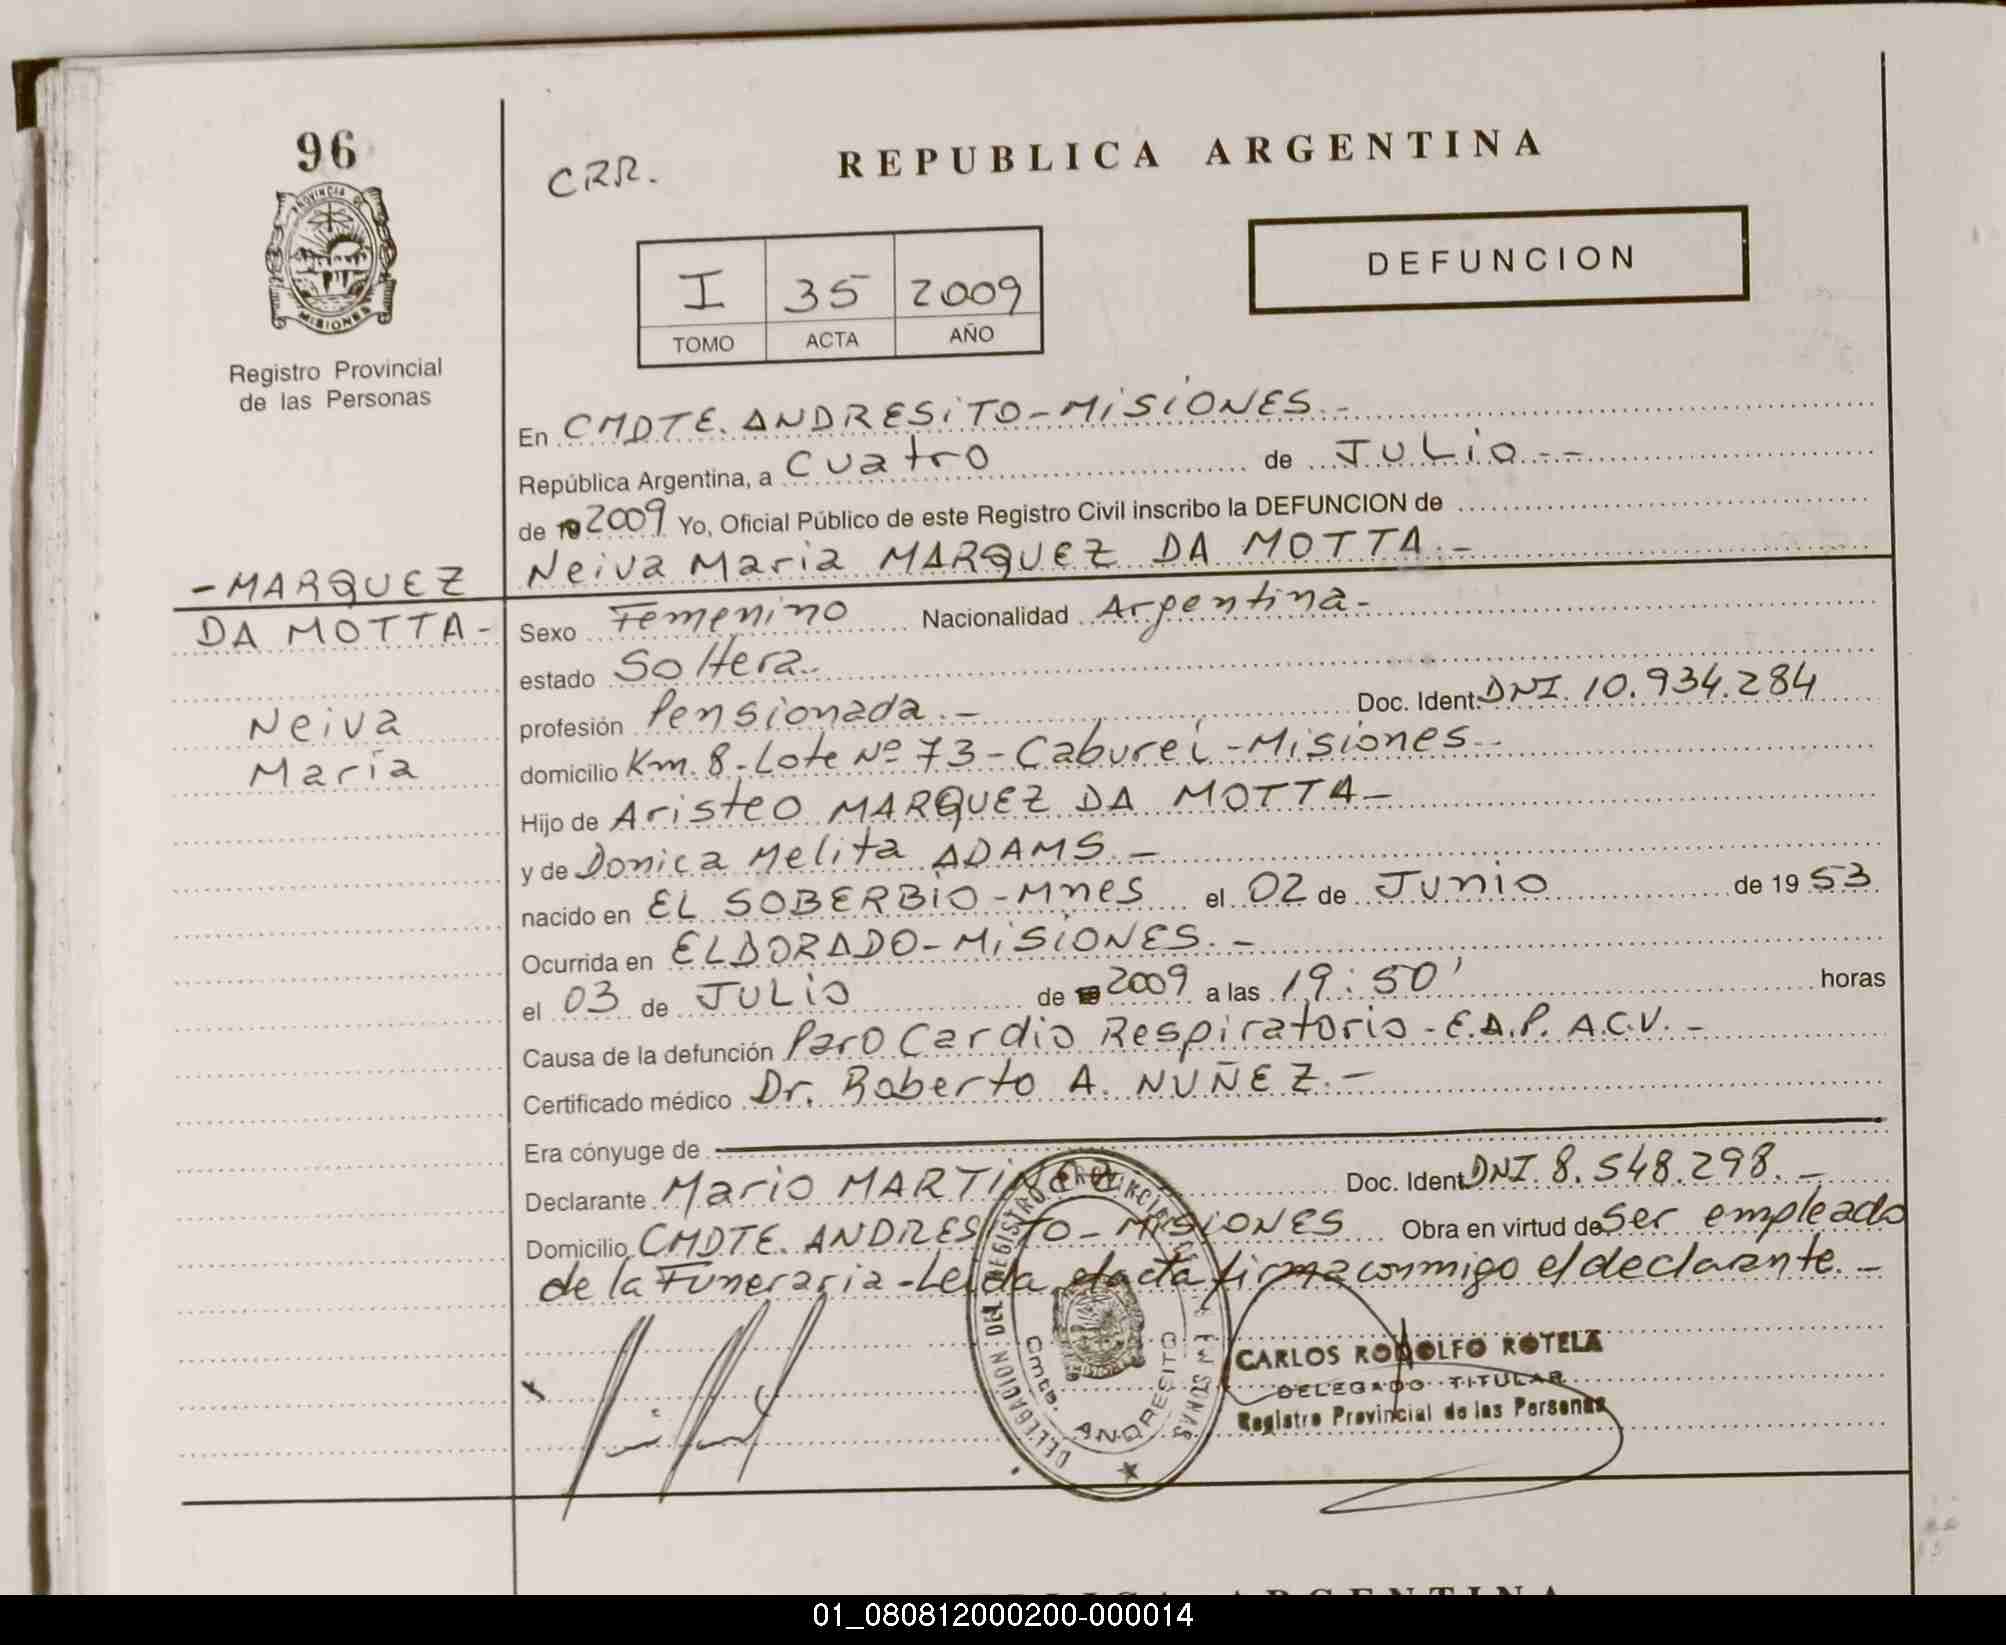 96
PROVINCIA DE
MISIONES
Registro Provincial
de las Personas
CRR.
REPUBLICA ARGENTINA
DEFUNCION
I 35 2009
TOMO ACTA AÑO
En CMDTE. ANDRESiTO-MiSiONES.-
República Argentina, a Cuatro de JULio--
de 19 2009 Yo, Oficial Público de este Registro Civil inscribo la DEFUNCION de
Neiva Maria MARQUEZ DA MOTTA.-
-MARQUEZ
DA MOTTA-
Neiva
Maria
Sexo Femenino Nacionalidad Argentina-
estado Soltera.
profesión Pensionada.- Doc. Ident. DNI. 10.934.284
domicilio Km. 8-Lote Nº 73-Caburei-Misiones--
Hijo de Aristeo MARQUEZ DA MOTTA-
y de Donica Melita ADAMS.-
nacido en EL SOBERBiO-Mnes el 02 de Junio de 19 53
Ocurrida en ELDORADO-MiSiONES.-
el 03 de JULio de 2009 a las 19:50' horas
Causa de la defunción Paro Cardio Respiratorio-E.A.P. A.C.V.-
Certificado médico Dr. Roberto A. NUÑEZ.-
Era cónyuge de
Declarante Mario MARTINEZ Doc. Ident DNI. 8.548.298.-
Domicilio CMDTE. ANDRESiTO-MiSiONES Obra en virtud de Ser empleado
de la Funeraria-Leida el acta firma conmigo el declarante.-
DELEGACION DEL REGISTRO PROVINCIAL DE LAS PERSONAS
Cmte. ANDRESITO
CARLOS RODOLFO ROTELA
DELEGADO TITULAR
Registro Provincial de las Personas
REPUBLICA ARGENTINA
01_080812000200-000014